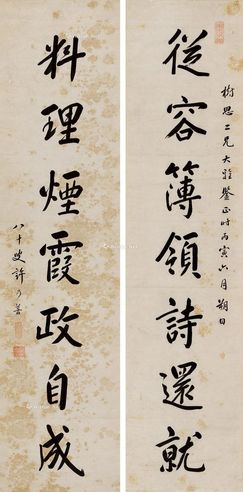 樹恩二兄大雅鑒正時丙寅六月朔日
從容簿領詩還就
料理煙霞政自成
八十叟許乃普